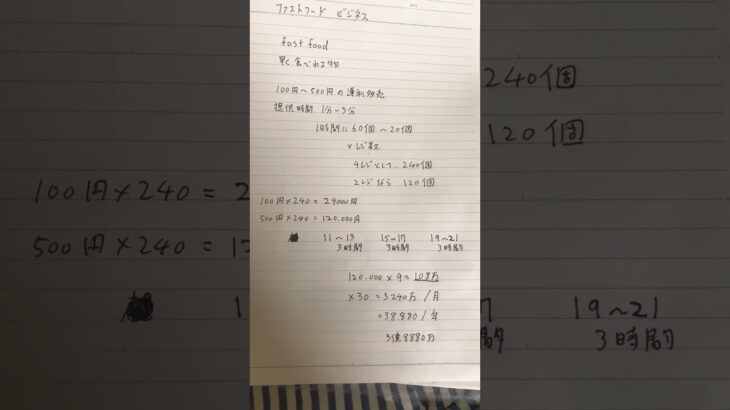 ファストフード ビジネス
fast food
早く食べれる物
100円〜500円の薄利多売
提供時間 1分〜3分
1時間に60個〜20個
×レジ数
4レジとして 240個
2レジなら 120個
100円×240 = 24000円
500円×240 = 120.000円
11〜13 15〜17 19〜21
3時間 3時間 3時間
120.000×9 = 108万
×30 = 3240万/月
= 38.880/年
3億8880万
240個
120個
100円×240 = 2
500円×240 = 12
1
7
間
19〜21
3時間